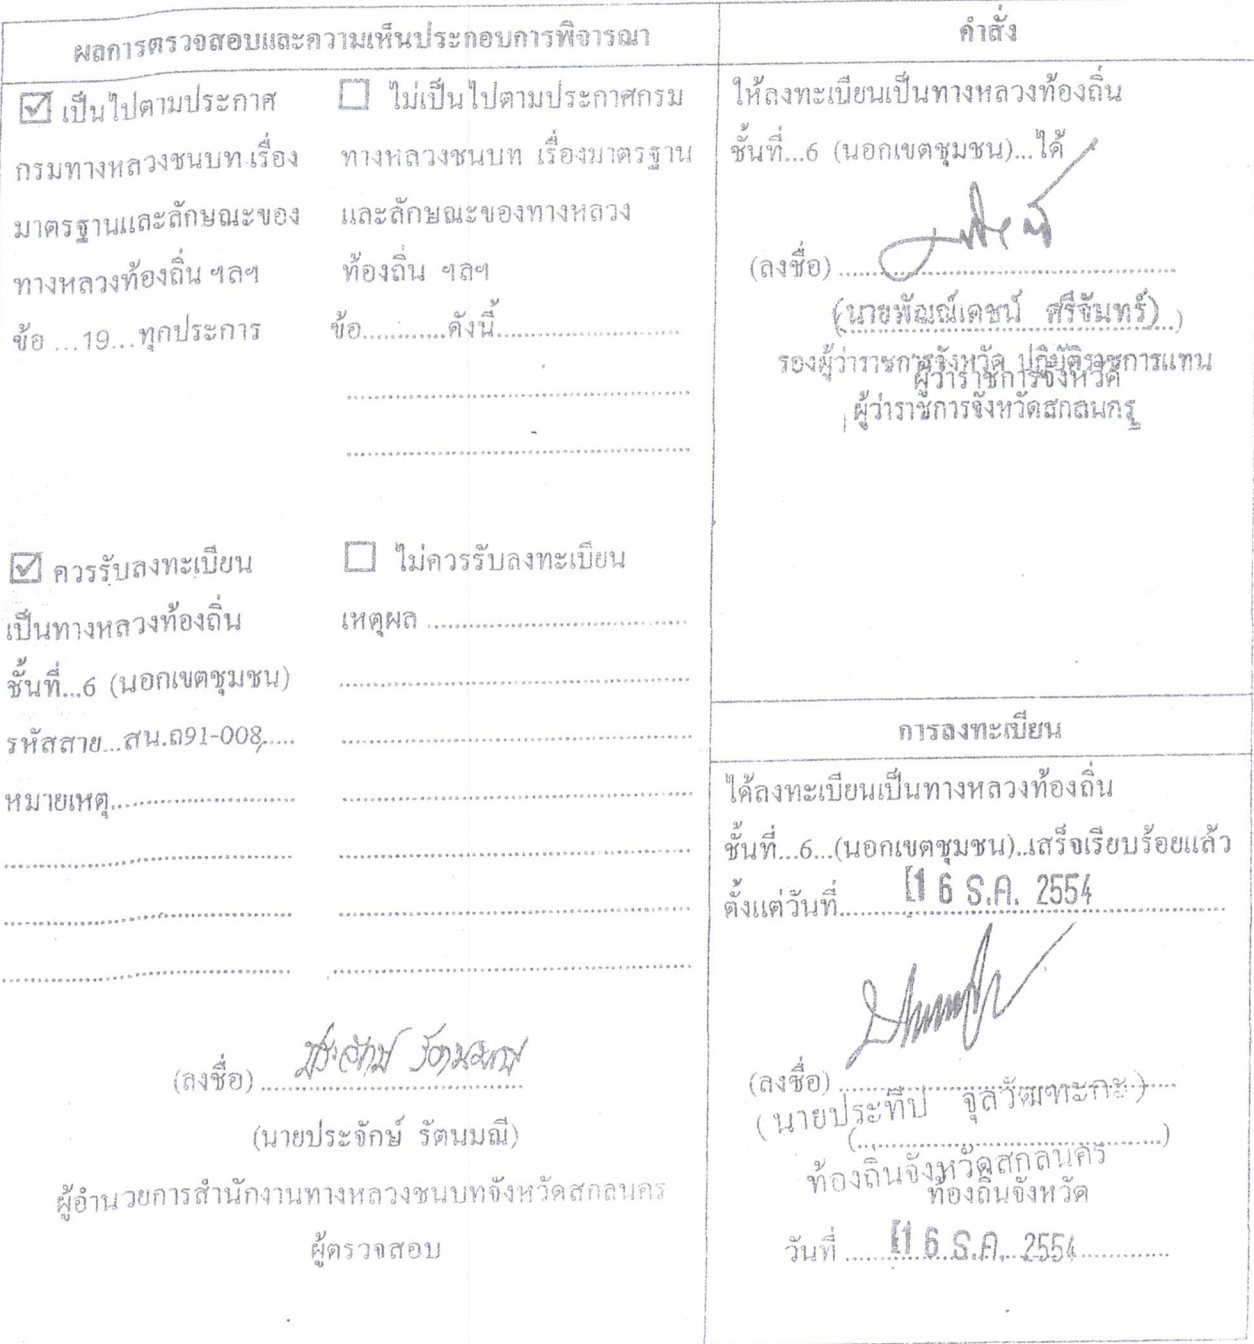 ผลการตรวจสอบและความเห็นประกอบการพิจารณา
☑ เป็นไปตามประกาศ
กรมทางหลวงชนบท เรื่อง
มาตรฐานและลักษณะของ
ทางหลวงท้องถิ่น ฯลฯ
ข้อ ...19...ทุกประการ
☐ ไม่เป็นไปตามประกาศกรม
ทางหลวงชนบท เรื่องมาตรฐาน
และลักษณะของทางหลวง
ท้องถิ่น ฯลฯ
ข้อ............ดังนี้..........................
☑ ควรรับลงทะเบียน
เป็นทางหลวงท้องถิ่น
ชั้นที่...6 (นอกเขตชุมชน)
รหัสสาย...สน.ถ91-008.....
หมายเหตุ..........................
☐ ไม่ควรรับลงทะเบียน
เหตุผล ..................................
(ลงชื่อ) ประจักษ์ รัตนมณี
(นายประจักษ์ รัตนมณี)
ผู้อำนวยการสำนักงานทางหลวงชนบทจังหวัดสกลนคร
ผู้ตรวจสอบ
คำสั่ง
ให้ลงทะเบียนเป็นทางหลวงท้องถิ่น
ชั้นที่...6 (นอกเขตชุมชน)...ได้
(ลงชื่อ) ..............................................
(นายพัฒณ์เดชน์ ศรีจันทร์)
รองผู้ว่าราชการจังหวัด ปฏิบัติราชการแทน
ผู้ว่าราชการจังหวัด
ผู้ว่าราชการจังหวัดสกลนคร
การลงทะเบียน
ได้ลงทะเบียนเป็นทางหลวงท้องถิ่น
ชั้นที่...6...(นอกเขตชุมชน)..เสร็จเรียบร้อยแล้ว
ตั้งแต่วันที่..........16 ธ.ค. 2554..........
(ลงชื่อ) ..............................................
(นายประทีป จุลวัฒฑะกะ)
(..........................................)
ท้องถิ่นจังหวัดสกลนคร
ท้องถิ่นจังหวัด
วันที่ ......16 ธ.ค. 2554..............